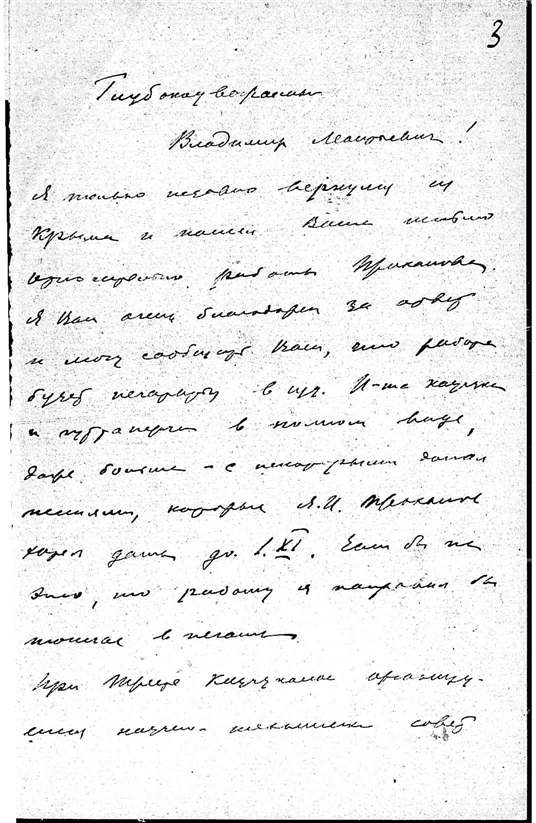 3
Глубокоуважаемый
Владимир Леонтьевич!
Я только недавно вернулся из
Крыма и нашел Ваше письмо
относительно работы Проханова.
Я Вам очень благодарен за ответ
и могу сообщить Вам, что работа
будет печататься в изд. И-та каучука
и гуттаперчи в полном виде,
даже больше - с некоторыми допол
нениями, которые Я.И. Проханов
хотел дать до 1.XI. Если бы не
это, то работу я направил бы
тотчас в печать
При Тресте Каучуконос организу-
ется научно-технический совет